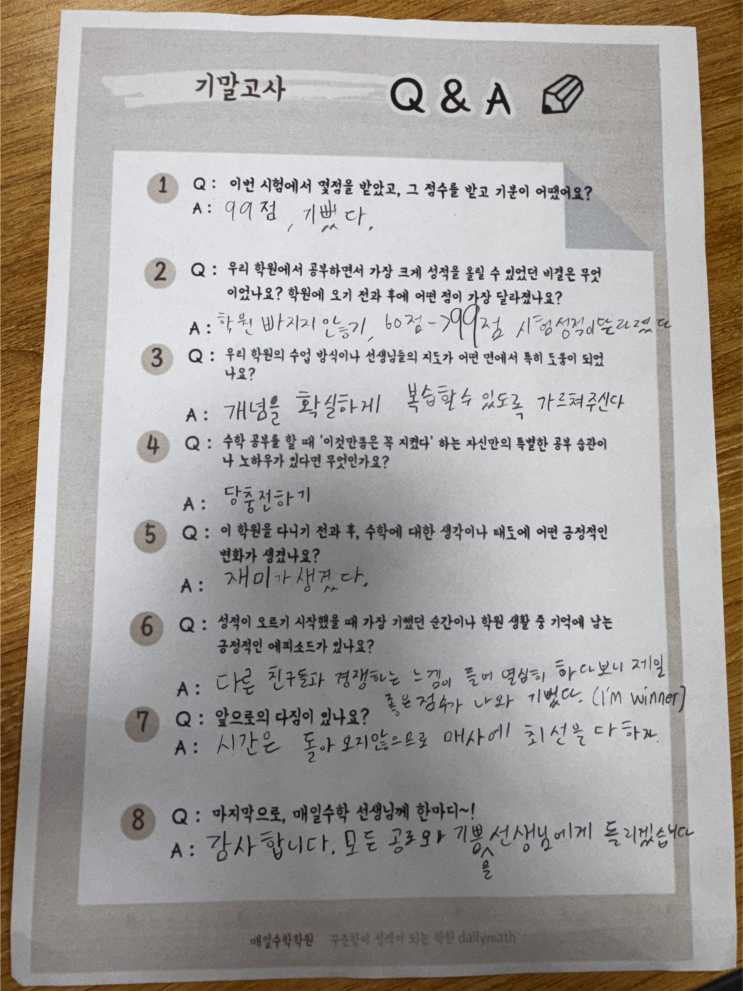 기말고사 Q & A
1 Q : 이번 시험에서 몇점을 받았고, 그 점수를 받고 기분이 어땠어요?
A : 99점, 기뻤다.
2 Q : 우리 학원에서 공부하면서 가장 크게 성적을 올릴 수 있었던 비결은 무엇
이었나요? 학원에 오기 전과 후에 어떤 점이 가장 달라졌나요?
A : 학원 빠지지 않기, 60점->99점 시험성적이 달라졌다
3 Q : 우리 학원의 수업 방식이나 선생님들의 지도가 어떤 면에서 특히 도움이 되었
나요?
A : 개념을 확실하게 복습할수 있도록 가르쳐주신다
4 Q : 수학 공부를 할 때 '이것만큼은 꼭 지켰다' 하는 자신만의 특별한 공부 습관이
나 노하우가 있다면 무엇인가요?
A : 당충전하기
5 Q : 이 학원을 다니기 전과 후, 수학에 대한 생각이나 태도에 어떤 긍정적인
변화가 생겼나요?
A : 재미가생겼다.
6 Q : 성적이 오르기 시작했을 때 가장 기뻤던 순간이나 학원 생활 중 기억에 남는
긍정적인 에피소드가 있나요?
A : 다른 친구들과 경쟁하는 느낌이 들어 열심히 하다보니 제일
좋은점수가 나와 기뻤다. (I'm winner)
7 Q : 앞으로의 다짐이 있나요?
A : 시간은 돌아오지않으므로 매사에 최선을 다하자.
8 Q : 마지막으로, 매일수학 선생님께 한마디~!
A : 감사합니다. 모든 공로와 기쁨을 선생님에게 돌리겠습니다
매일수학학원 꾸준함이 성적이 되는 학원 dailymath